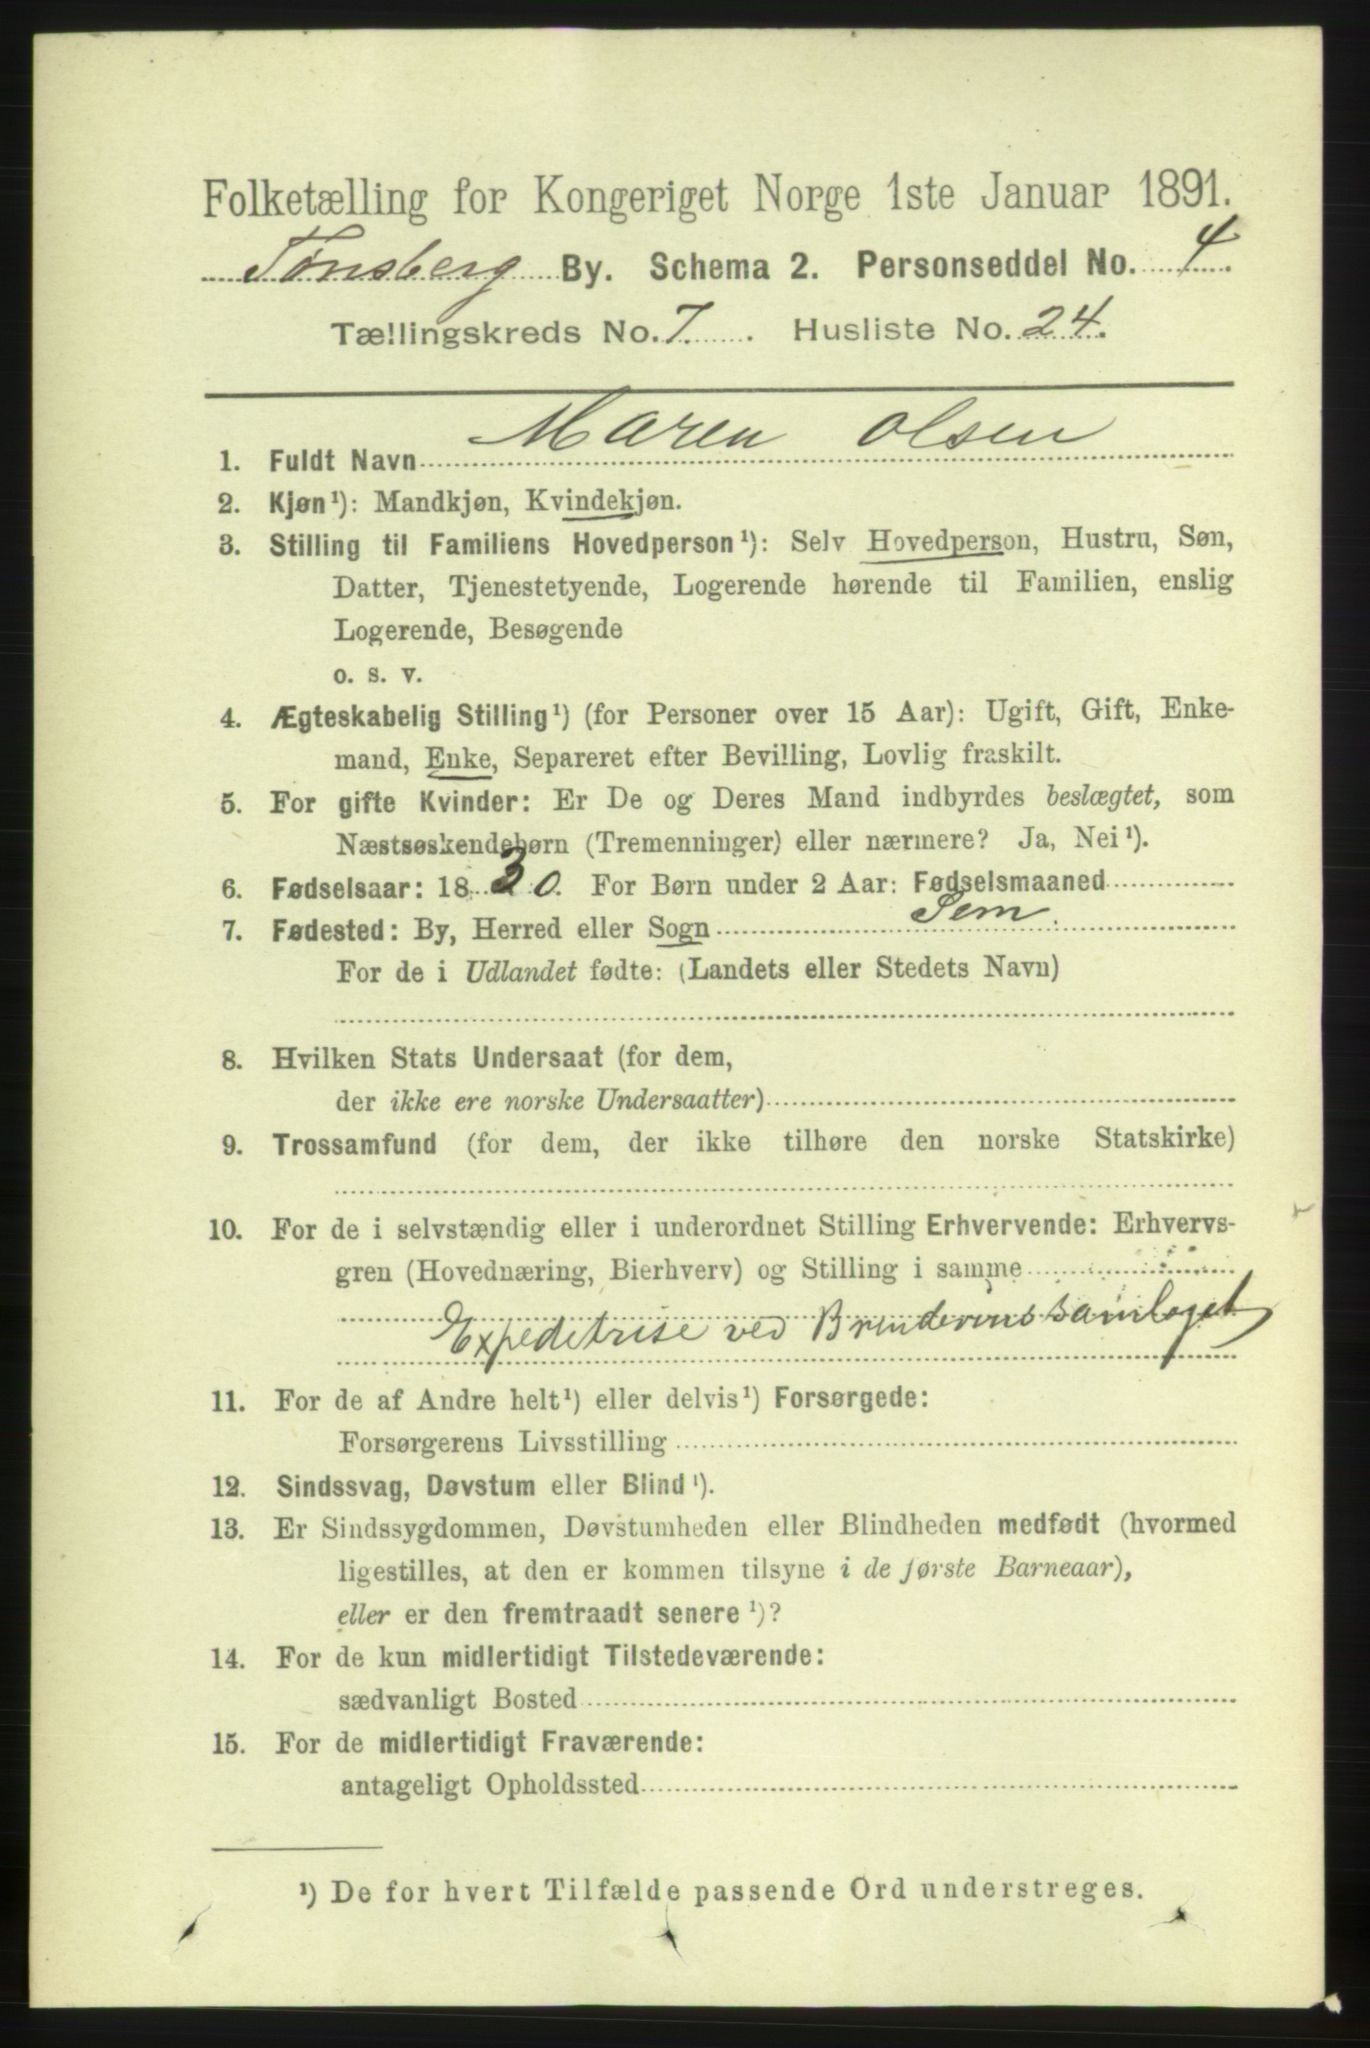 Folketælling for Kongeriget Norge 1ste Januar 1891.
Tønsberg By. Schema 2. Personseddel No. 4
Tællingskreds No. 7. Husliste No. 24.
1. Fuldt Navn Maren Olsen
2. Kjøn¹): Mandkjøn, Kvindekjøn.
3. Stilling til Familiens Hovedperson¹): Selv Hovedperson, Hustru, Søn,
Datter, Tjenestetyende, Logerende hørende til Familien, enslig
Logerende, Besøgende
o. s. v.
4. Ægteskabelig Stilling¹) (for Personer over 15 Aar): Ugift, Gift, Enke-
mand, Enke, Separeret efter Bevilling, Lovlig fraskilt.
5. For gifte Kvinder: Er De og Deres Mand indbyrdes beslægtet, som
Næstsøskendebørn (Tremenninger) eller nærmere? Ja, Nei¹).
6. Fødselsaar: 1830. For Børn under 2 Aar: Fødselsmaaned
7. Fødested: By, Herred eller Sogn Sem.
For de i Udlandet fødte: (Landets eller Stedets Navn)
8. Hvilken Stats Undersaat (for dem,
der ikke ere norske Undersaatter)
9. Trossamfund (for dem, der ikke tilhøre den norske Statskirke)
10. For de i selvstændig eller i underordnet Stilling Erhvervende: Erhvervs-
gren (Hovednæring, Bierhverv) og Stilling i samme
Expeditrise ved
11. For de af Andre helt¹) eller delvis¹) Forsørgede:
Forsørgerens Livsstilling
12. Sindssvag, Døvstum eller Blind¹).
13. Er Sindssygdommen, Døvstumheden eller Blindheden medfødt (hvormed
ligestilles, at den er kommen tilsyne i de første Barneaar),
eller er den fremtraadt senere¹)?
14. For de kun midlertidigt Tilstedeværende:
sædvanligt Bosted
15. For de midlertidigt Fraværende:
antageligt Opholdssted
¹) De for hvert Tilfælde passende Ord understreges.